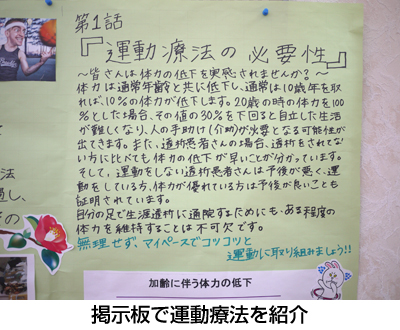 第1話
『運動療法の必要性』
～皆さんは体力の低下を実感されませんか？～
体力は通常年齢と共に低下し、通常は10歳年を取
れば、10％の体力が低下します。20歳の時の体力を100
％とした場合、その値の30％を下回ると自立した生活
が難しくなり、人の手助け(介助)が必要となる可能性が
出てきます。また、透析患者さんの場合、透析をされてな
い方に比べても体力の低下が早いことが分かっています。
そして、運動をしない透析患者さんは予後が悪く、運
動をしている方、体力が優れている方は予後が良いことも
証明されています。
自分の足で生涯透析に通院するためにも、ある程度の
体力を維持することは不可欠です。
無理せず、マイペースでコツコツと
運動に取り組みましょう!!
加齢に伴う体力の低下
掲示板で運動療法を紹介